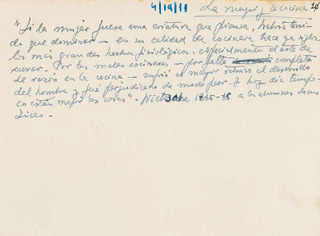 4/14/88 La mujer y la cocina
"Si la mujer fuese una criatura que piensa, habría teni-
do que dominar — en su calidad de cocinera hace ya siglos
los más grandes hechos fisiológicos, especialmente el arte de
curar. Por las malas cocineras — por falta completa
de razón en la cocina — sufrió el mayor retraso el desarrollo
del hombre y fué perjudicado de modo peor. Y hoy día tampo-
co están mejor las cosas". Nietzsche 1885-86 a los alumnos de un
Liceo.